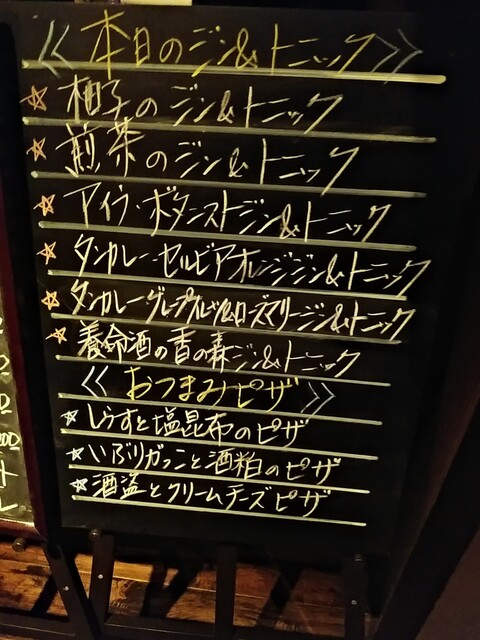 《本日のジン&トニック》
☆柚子のジン&トニック
☆煎茶のジン&トニック
☆アイラ・ボタニストジン&トニック
☆タンカレーセルビアオレンジジン&トニック
☆タンカレーグレープフルーツ&ローズマリージン&トニック
☆養命酒の香の森ジン&トニック
《おつまみピザ》
☆しらすと塩昆布のピザ
☆いぶりがっこと酒粕のピザ
☆酒盗とクリームチーズピザ